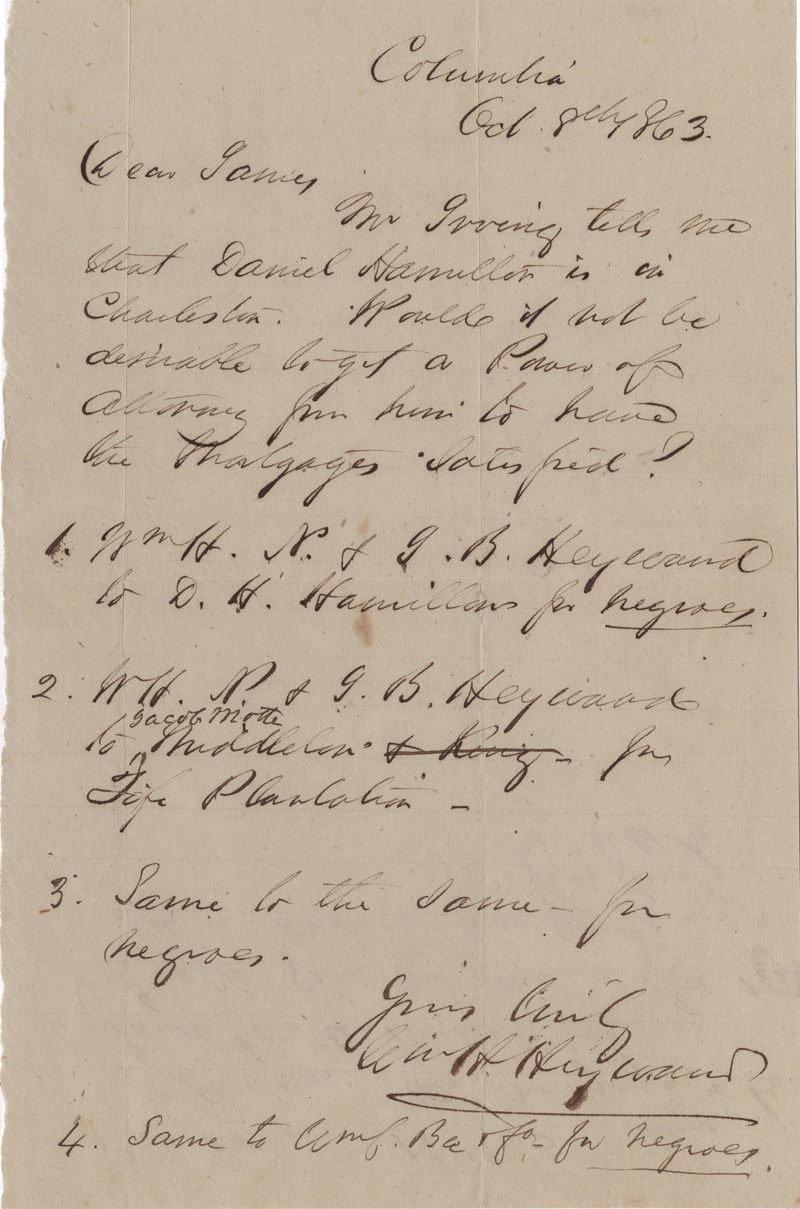 Columbia
Oct. 8th 1863.
Dear James
Mr Irving tells me
that Daniel Hamilton is in
Charleston. Would it not be
desirable to get a Power of
Attorney from him to have
the Mortgages Satisfied?
1. Wm H. N. & J. B. Heyward
to D. H. Hamilton for negroes.
2. W H. N & J. B. Heyward
Jacob Motte
to Middleton & King - for
Fife Plantation -
3. Same to the same - for
negroes.
Yours truly
Wm H. Heyward
4. Same to Wm C. Bee & Co - for negroes.